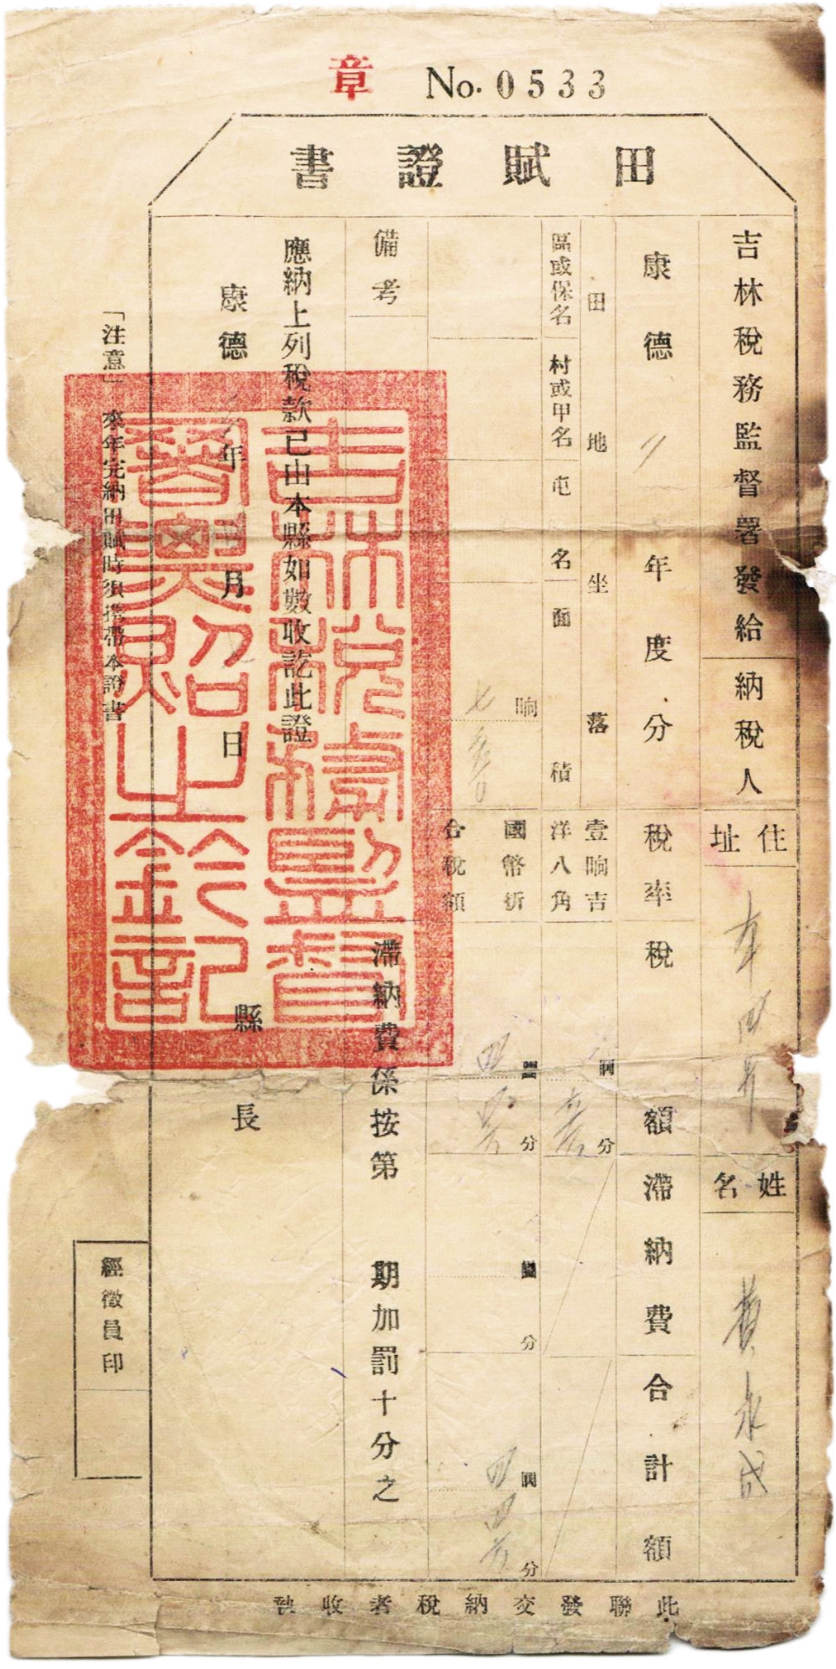 章 No. 0533
田賦證書
吉林稅務監督署發給
納稅人
住址
姓名
黃永成
康德 年度分
稅率
稅額
滯納費
合計額
田地坐落
區或保名
村或甲名
屯名
面積
壹晌吉
洋八角
國幣折
合稅額
晌
七
圓
分
圓
分
圓
分
圓
分
四
備考
滯納費係按第 期加罰十分之
應納上列稅款已由本縣如數收訖此證
康德 年 月 日
縣長
吉林稅務監督
署奧照之鈐記
「注意」 來年完納田賦時須攜帶本證書
經徵員印
此聯發交納稅者收執